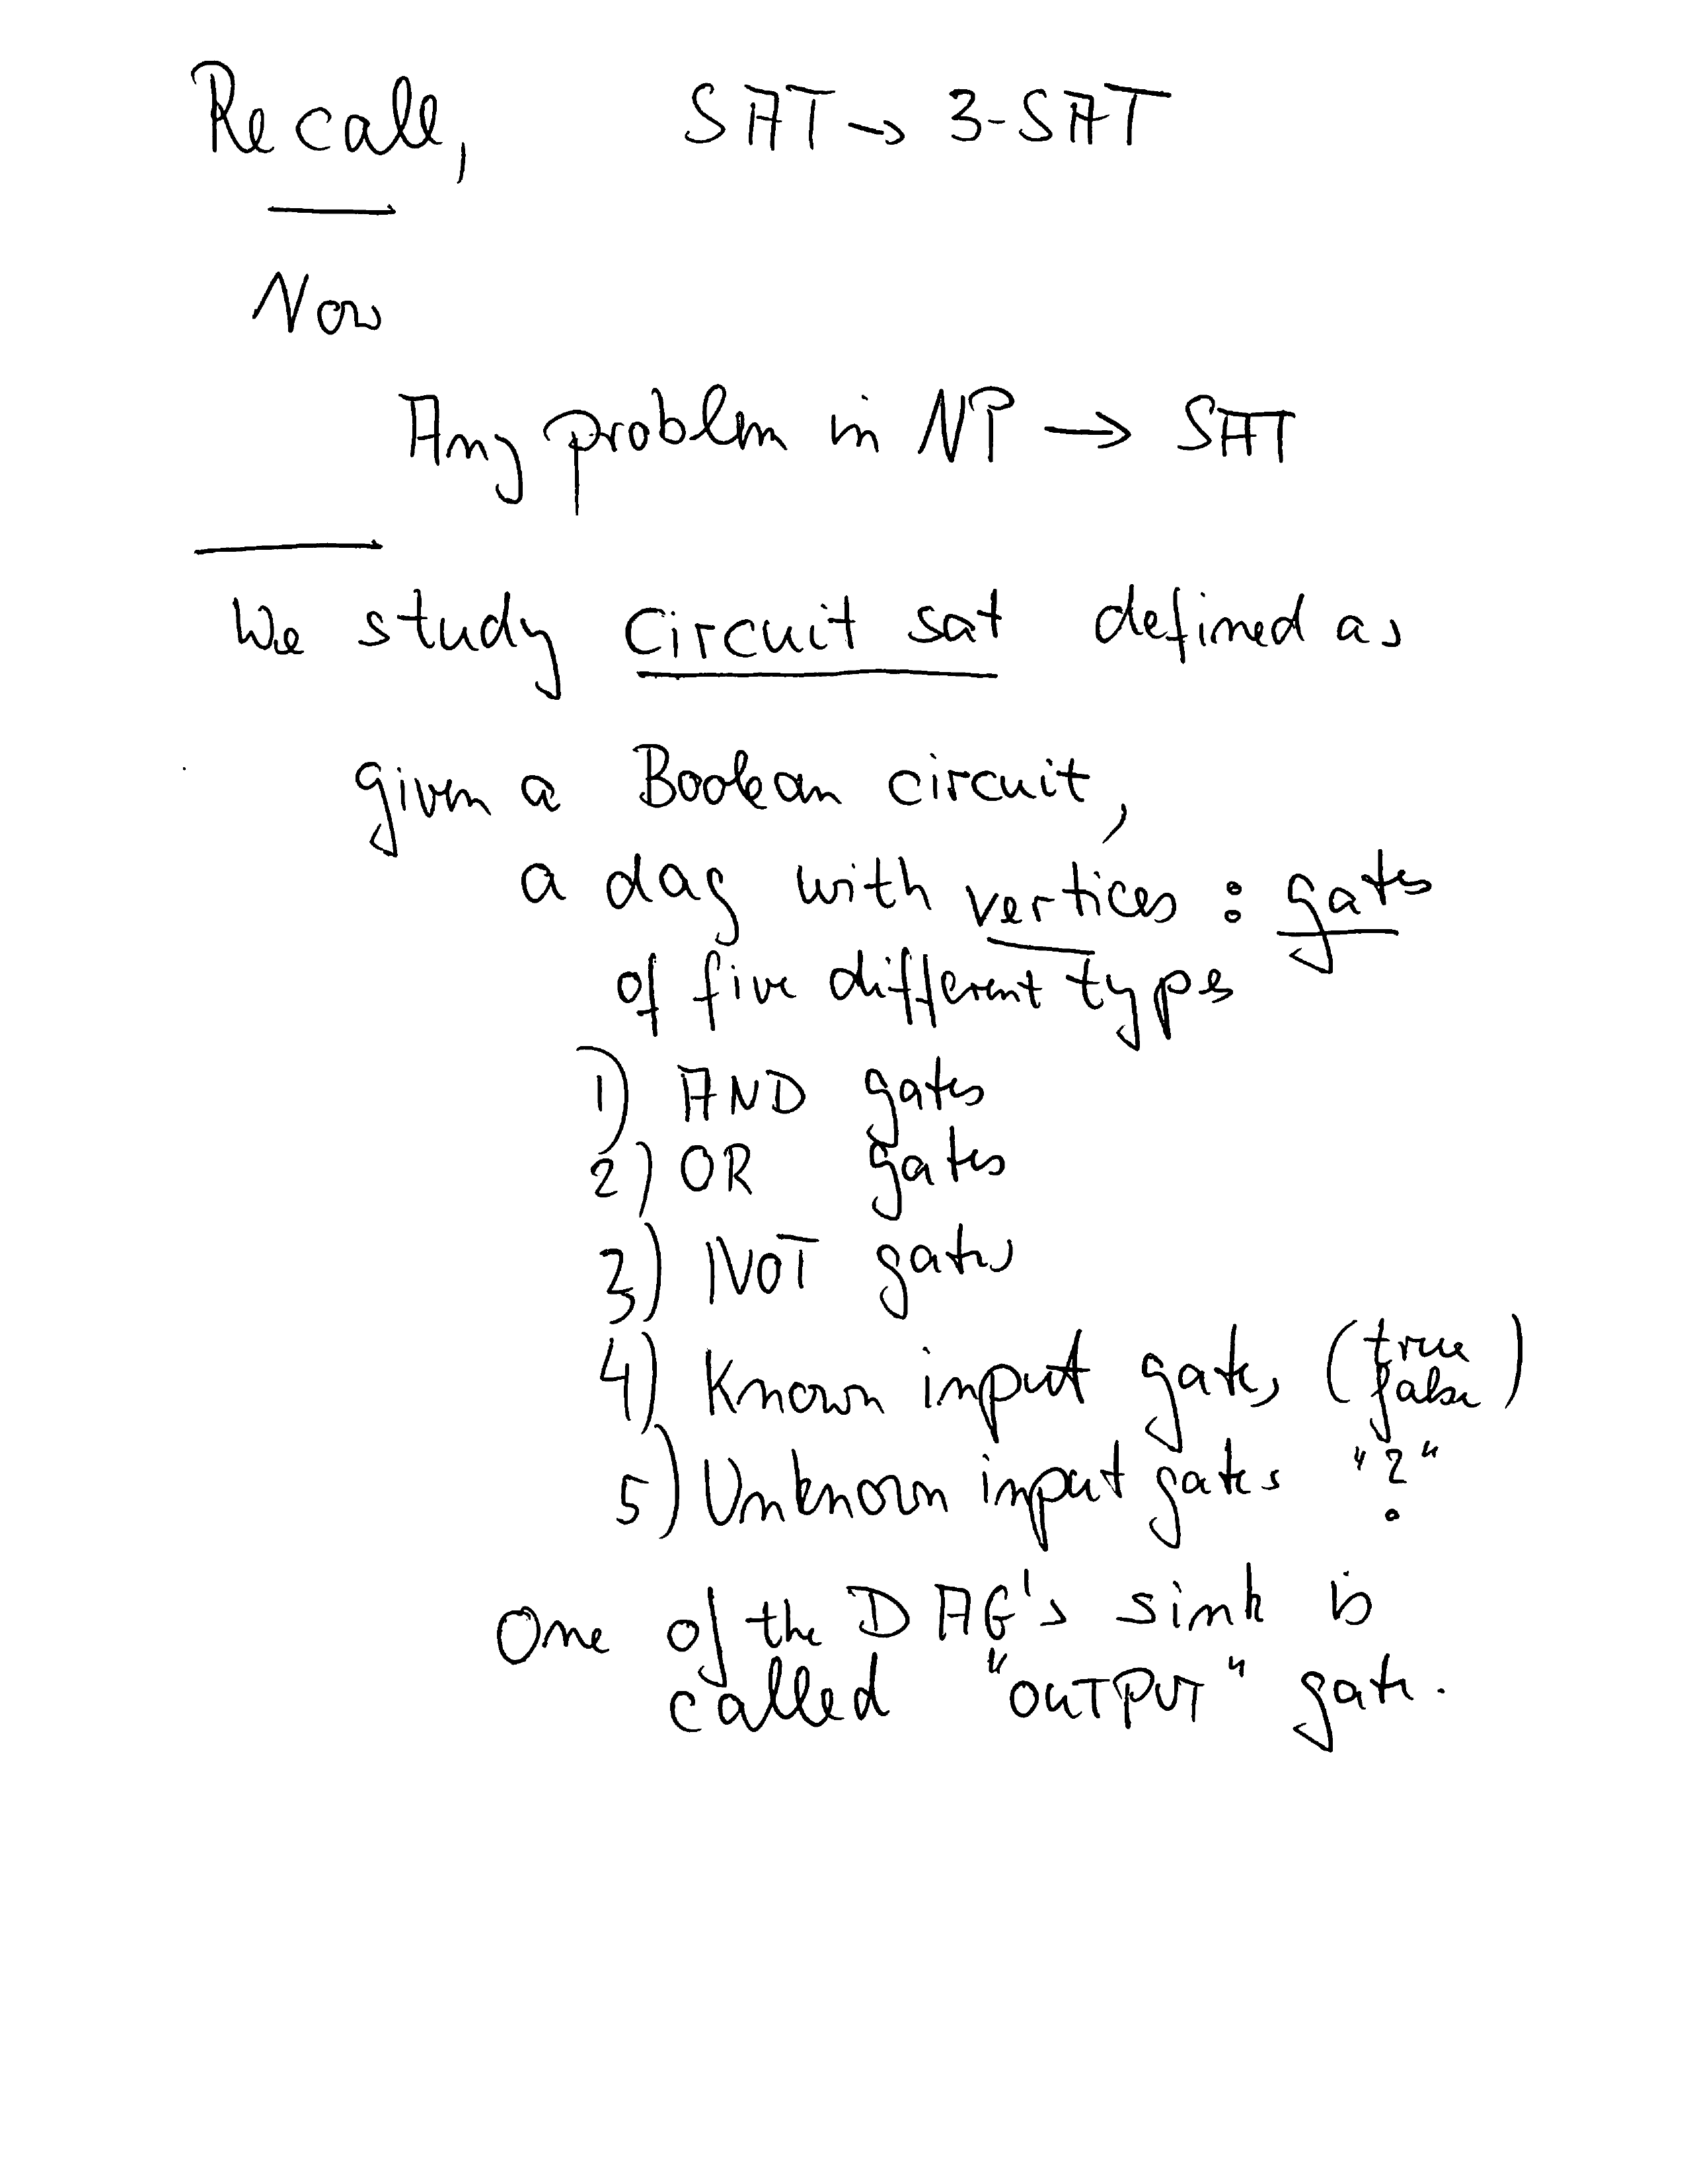 Recall, SAT → 3-SAT
Now
Any problem in NP → SAT
We study circuit sat defined as
given a Boolean circuit,
a dag with vertices : gates
of five different types
1) AND gates
2) OR gates
3) NOT gates
4) Known input gates (true false)
5) Unknown input gates "?"
One of the DAG's sink is
called "OUTPUT" gate.